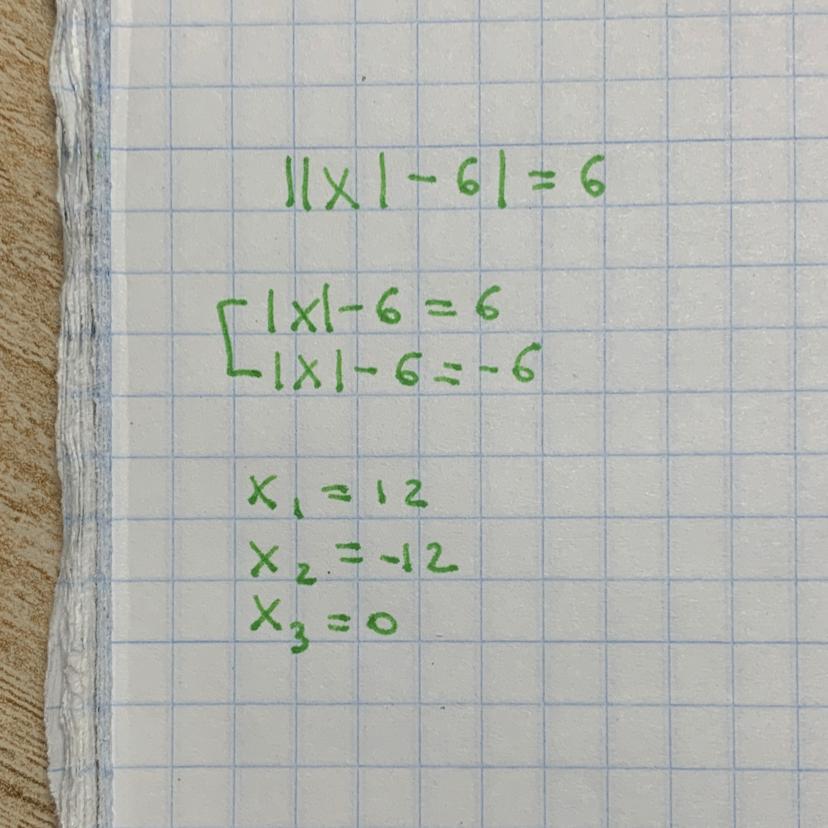 ||x|-6|=6
[|x|-6=6
|x|-6=-6
x₁=12
x₂=-12
x₃=0